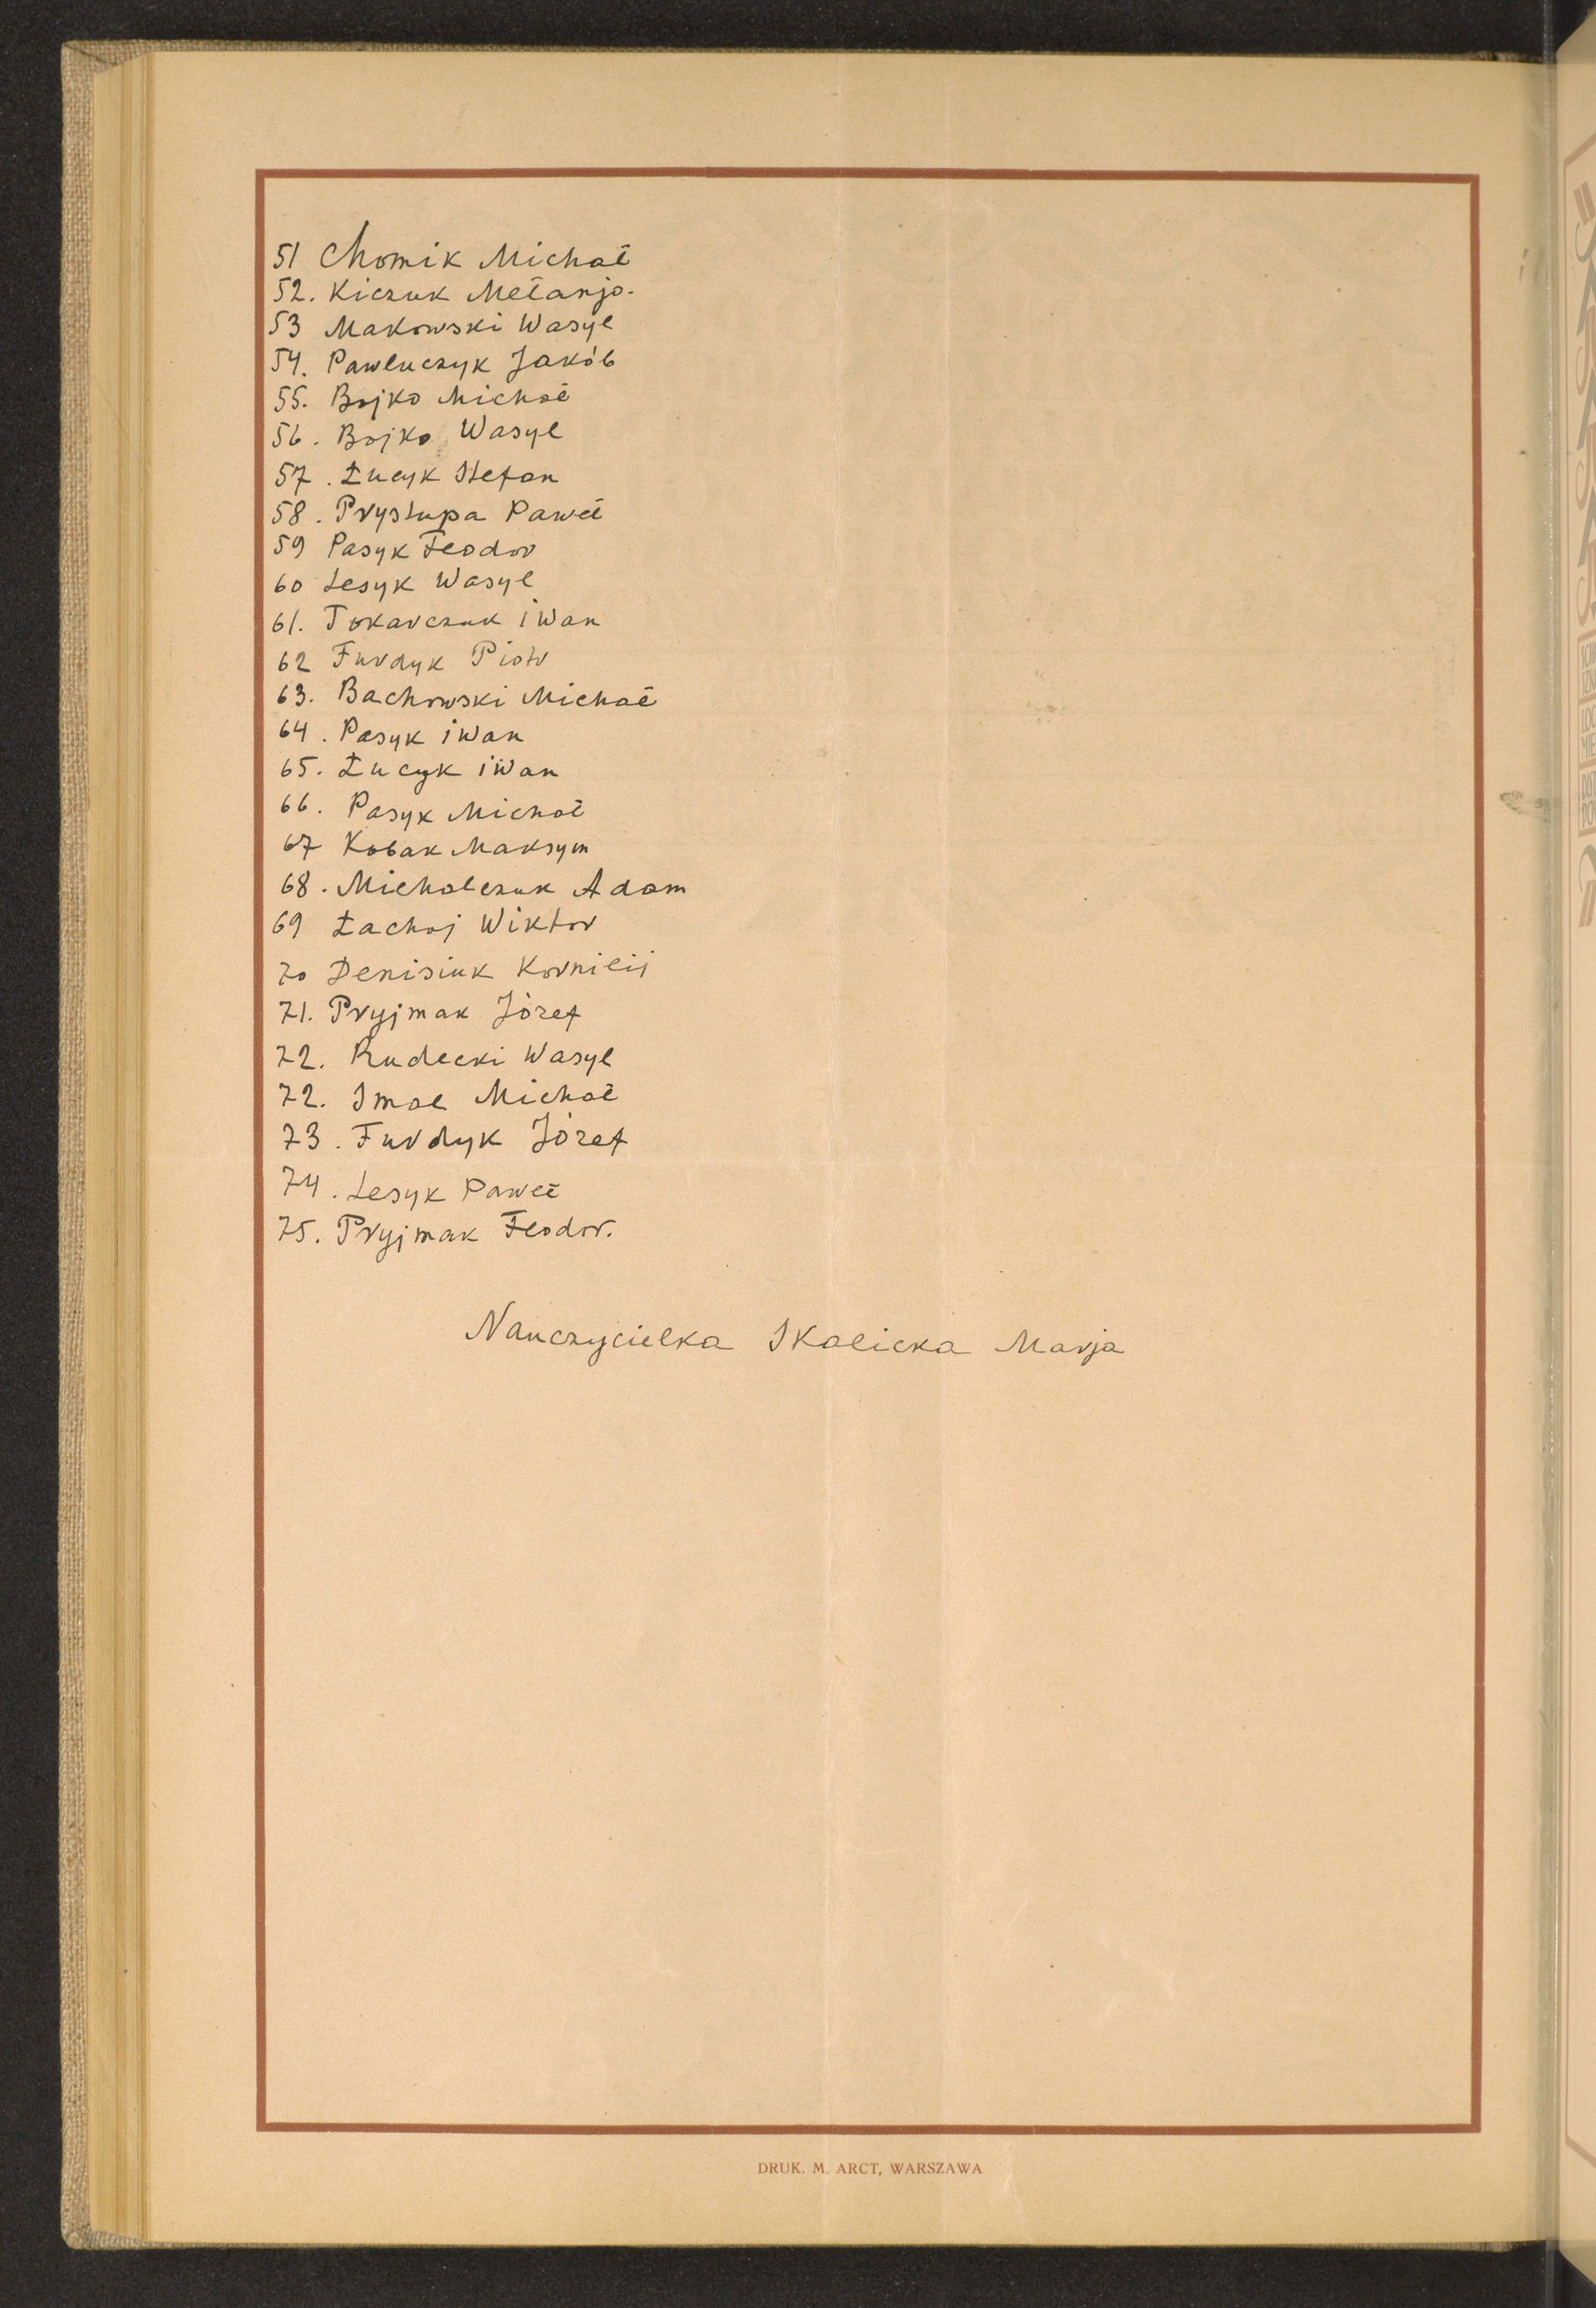 51 Chomik Michał
52. Kiczuk Mełanja.
53 Makowski Wasyl
54. Pawluczyk Jakób
55. Bojko Michał
56. Bojko Wasyl
57. Łucyk Stefan
58. Prystupa Paweł
59 Pasyk Feodor
60 Lesyk Wasyl
61. Tokarczuk iwan
62 Furdyk Piotr
63. Bachowski Michał
64. Pasyk iwan
65. Łucyk iwan
66. Pasyk Michał
67 Kobak Maksym
68. Michalczuk Adam
69 Łachaj Wiktor
70 Denisiuk Kornilij
71. Pryjmak Józef
72. Rudecki Wasyl
72. Smal Michał
73. Furdyk Józef
74. Lesyk Paweł
75. Pryjmak Feodor.
Nauczycielka Skalicka Marja
DRUK. M. ARCT, WARSZAWA